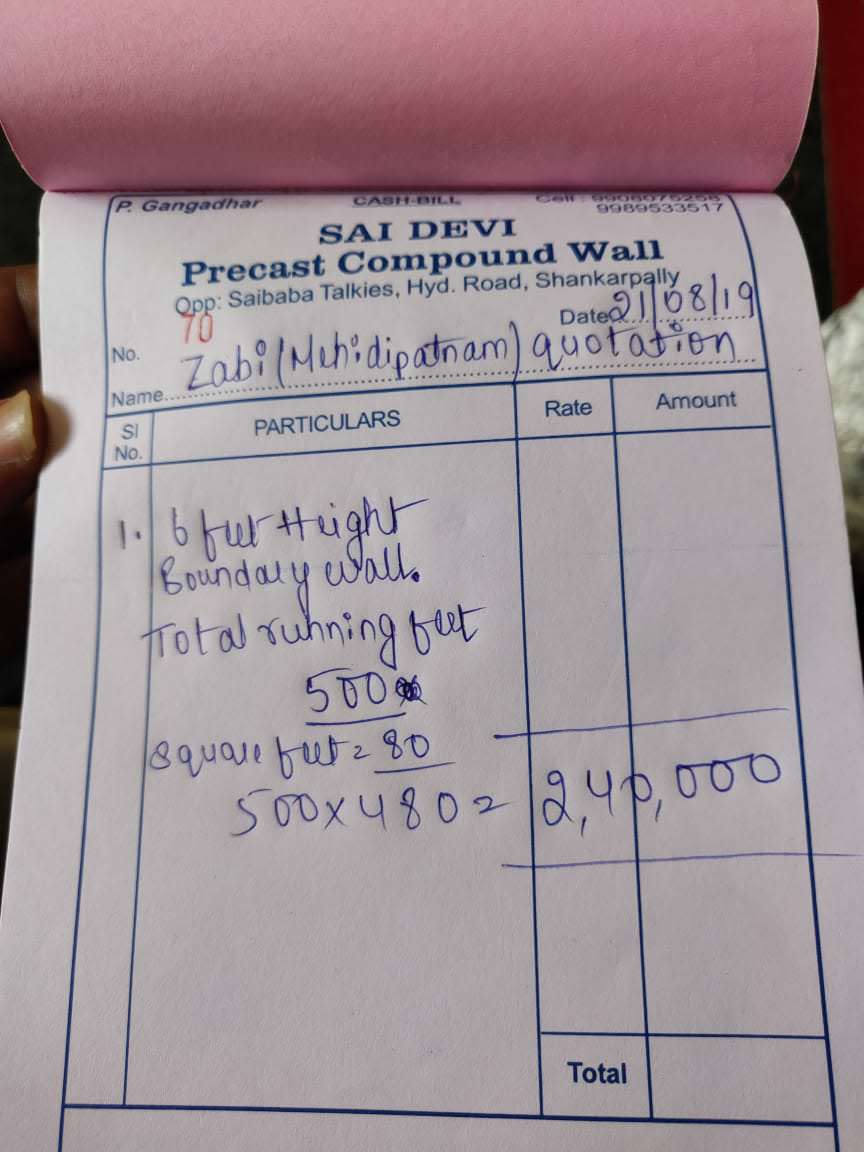 P. Gangadhar CASH-BILL Cell : 9908075256
9989533517
SAI DEVI
Precast Compound Wall
Opp: Saibaba Talkies, Hyd. Road, Shankarpally
No. 70 Date 21/08/19
Name Zabi (Mehidipatnam) quotation
Sl No. PARTICULARS Rate Amount
1. 6 feet Height
Boundary wall.
Total running feet
500
Square feet = 80
500 x 480 = 2,40,000
Total